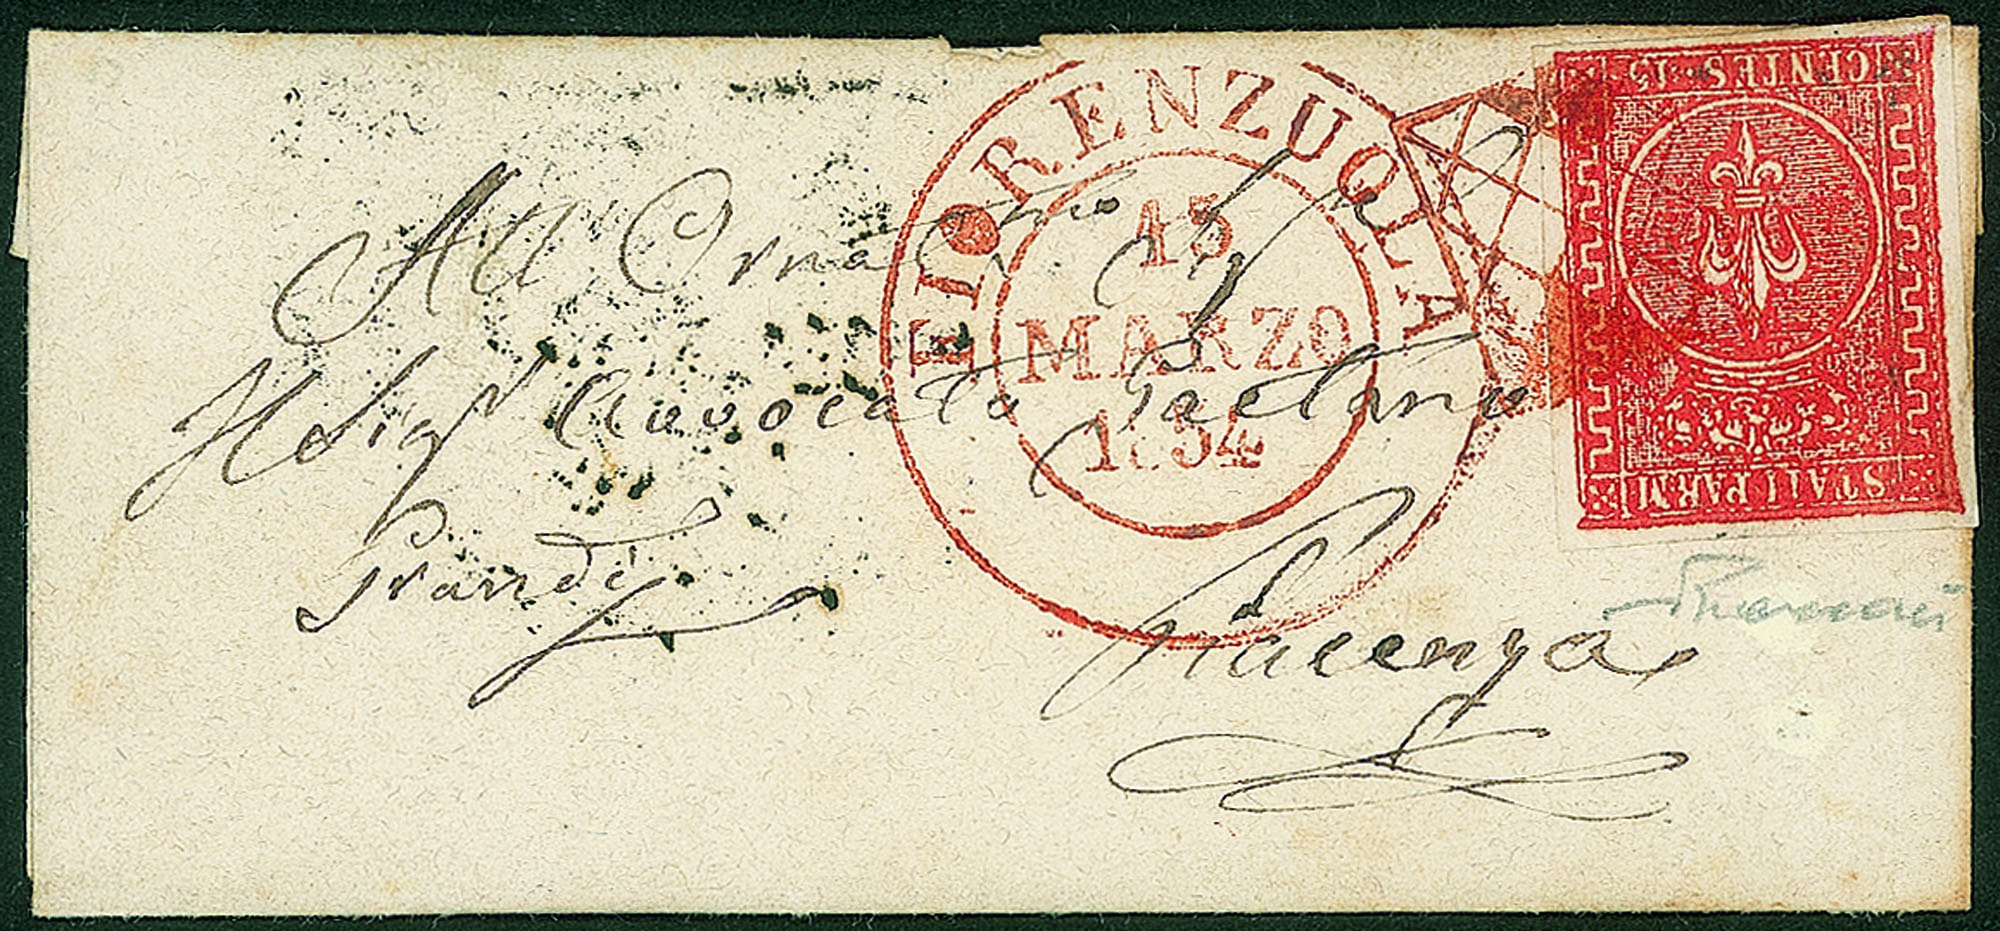 FIORENZUOLA
15
MARZO
1854
CENTES. 15
STATI PARM
All Ornatmo Sigr
Il Sigr Avvocato Gaetano
Grandi
Piacenza